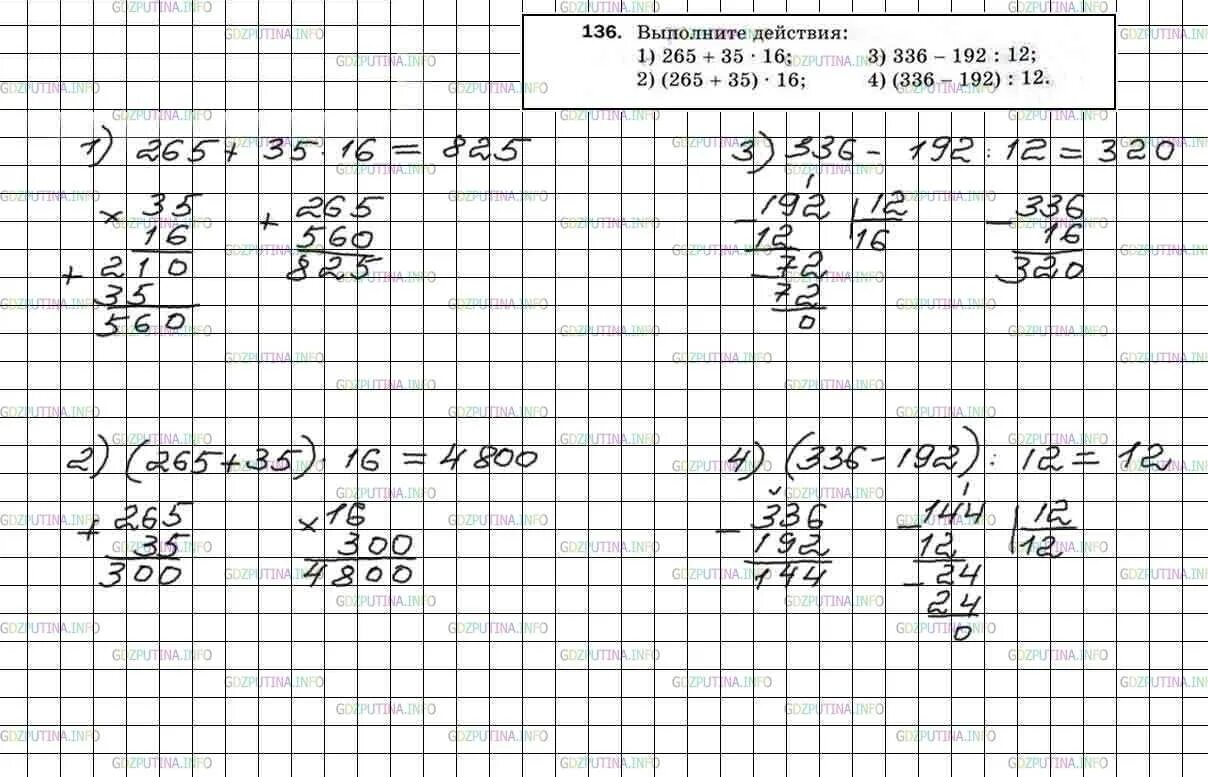 136. Выполните действия:
1) 265 + 35 · 16; 3) 336 – 192 : 12;
2) (265 + 35) · 16; 4) (336 – 192) : 12.
1) 265 + 35 · 16 = 825
× 35
16
+ 210
35
560
+ 265
560
825
3) 336 - 192 : 12 = 320
- 192 | 12
12 16
- 72
72
0
- 336
16
320
2) (265 + 35) · 16 = 4800
+ 265
35
300
× 16
300
4800
4) (336 - 192) : 12 = 12
- 336
192
144
- 144 | 12
12 12
- 24
24
0
GDZPUTINA.INFO